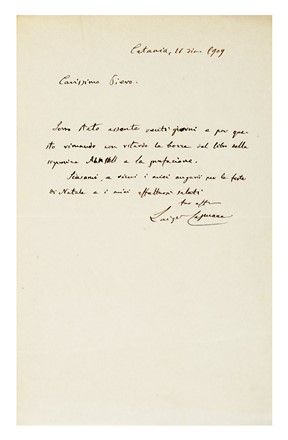 Catania, 11 dic. 1909
Carissimo Piero.
Sono stato assente venti giorni e per que-
sto rimando con ritardo le bozze del libro della
signorina e la prefazione.
Scusami, e ricevi i miei augurii per le feste
di Natale e i miei affettuosi saluti
tuo aff.
Luigi Capuana